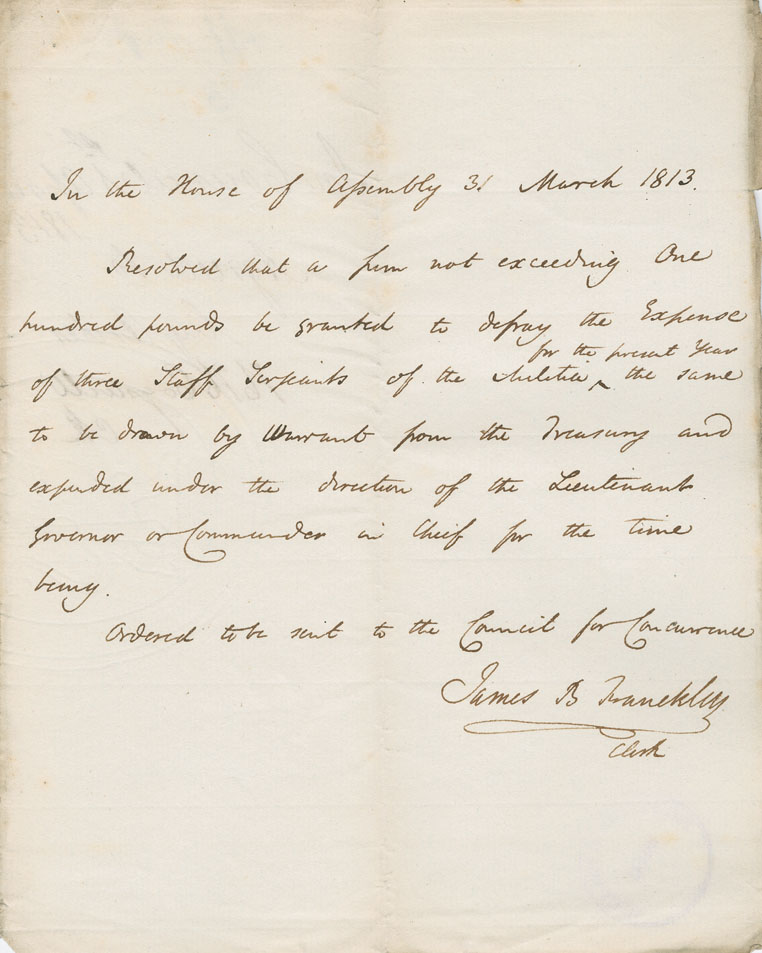 In the House of Assembly 31 March 1813.
Resolved that a sum not exceeding One
hundred pounds be granted to defray the Expense
for the present Year
of three Staff Serjeants of the Militia ‸ the same
to be drawn by Warrant from the Treasury and
expended under the direction of the Lieutenant
Governor or Commander in Chief for the time
being.
Ordered to be sent to the Council for Concurrence
James B Franckley
Clerk